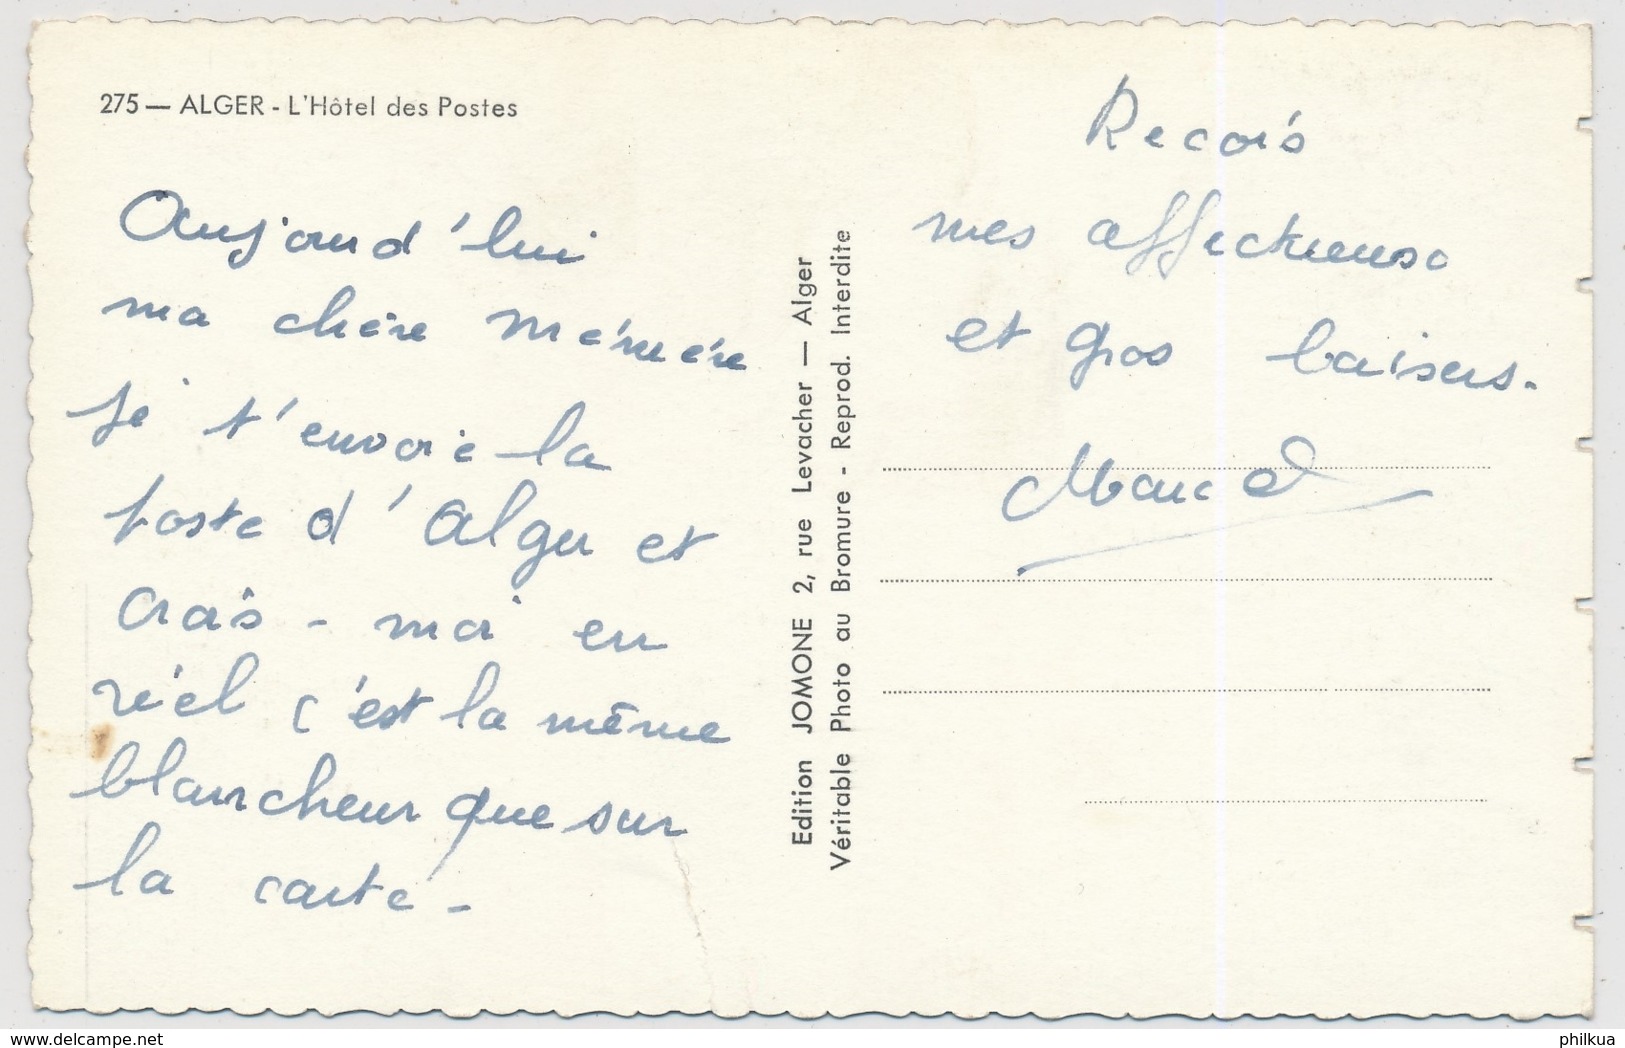 275 — ALGER - L'Hôtel des Postes
Aujourd'hui
ma chère mémère
je t'envoie la
poste d'Alger et
crois-moi en
réel c'est la même
blancheur que sur
la carte -
Edition JOMONE 2, rue Levacher — Alger
Véritable Photo au Bromure - Reprod. Interdite
Recois
mes affectueuse
et gros baisers.
delcampe.net
philkua